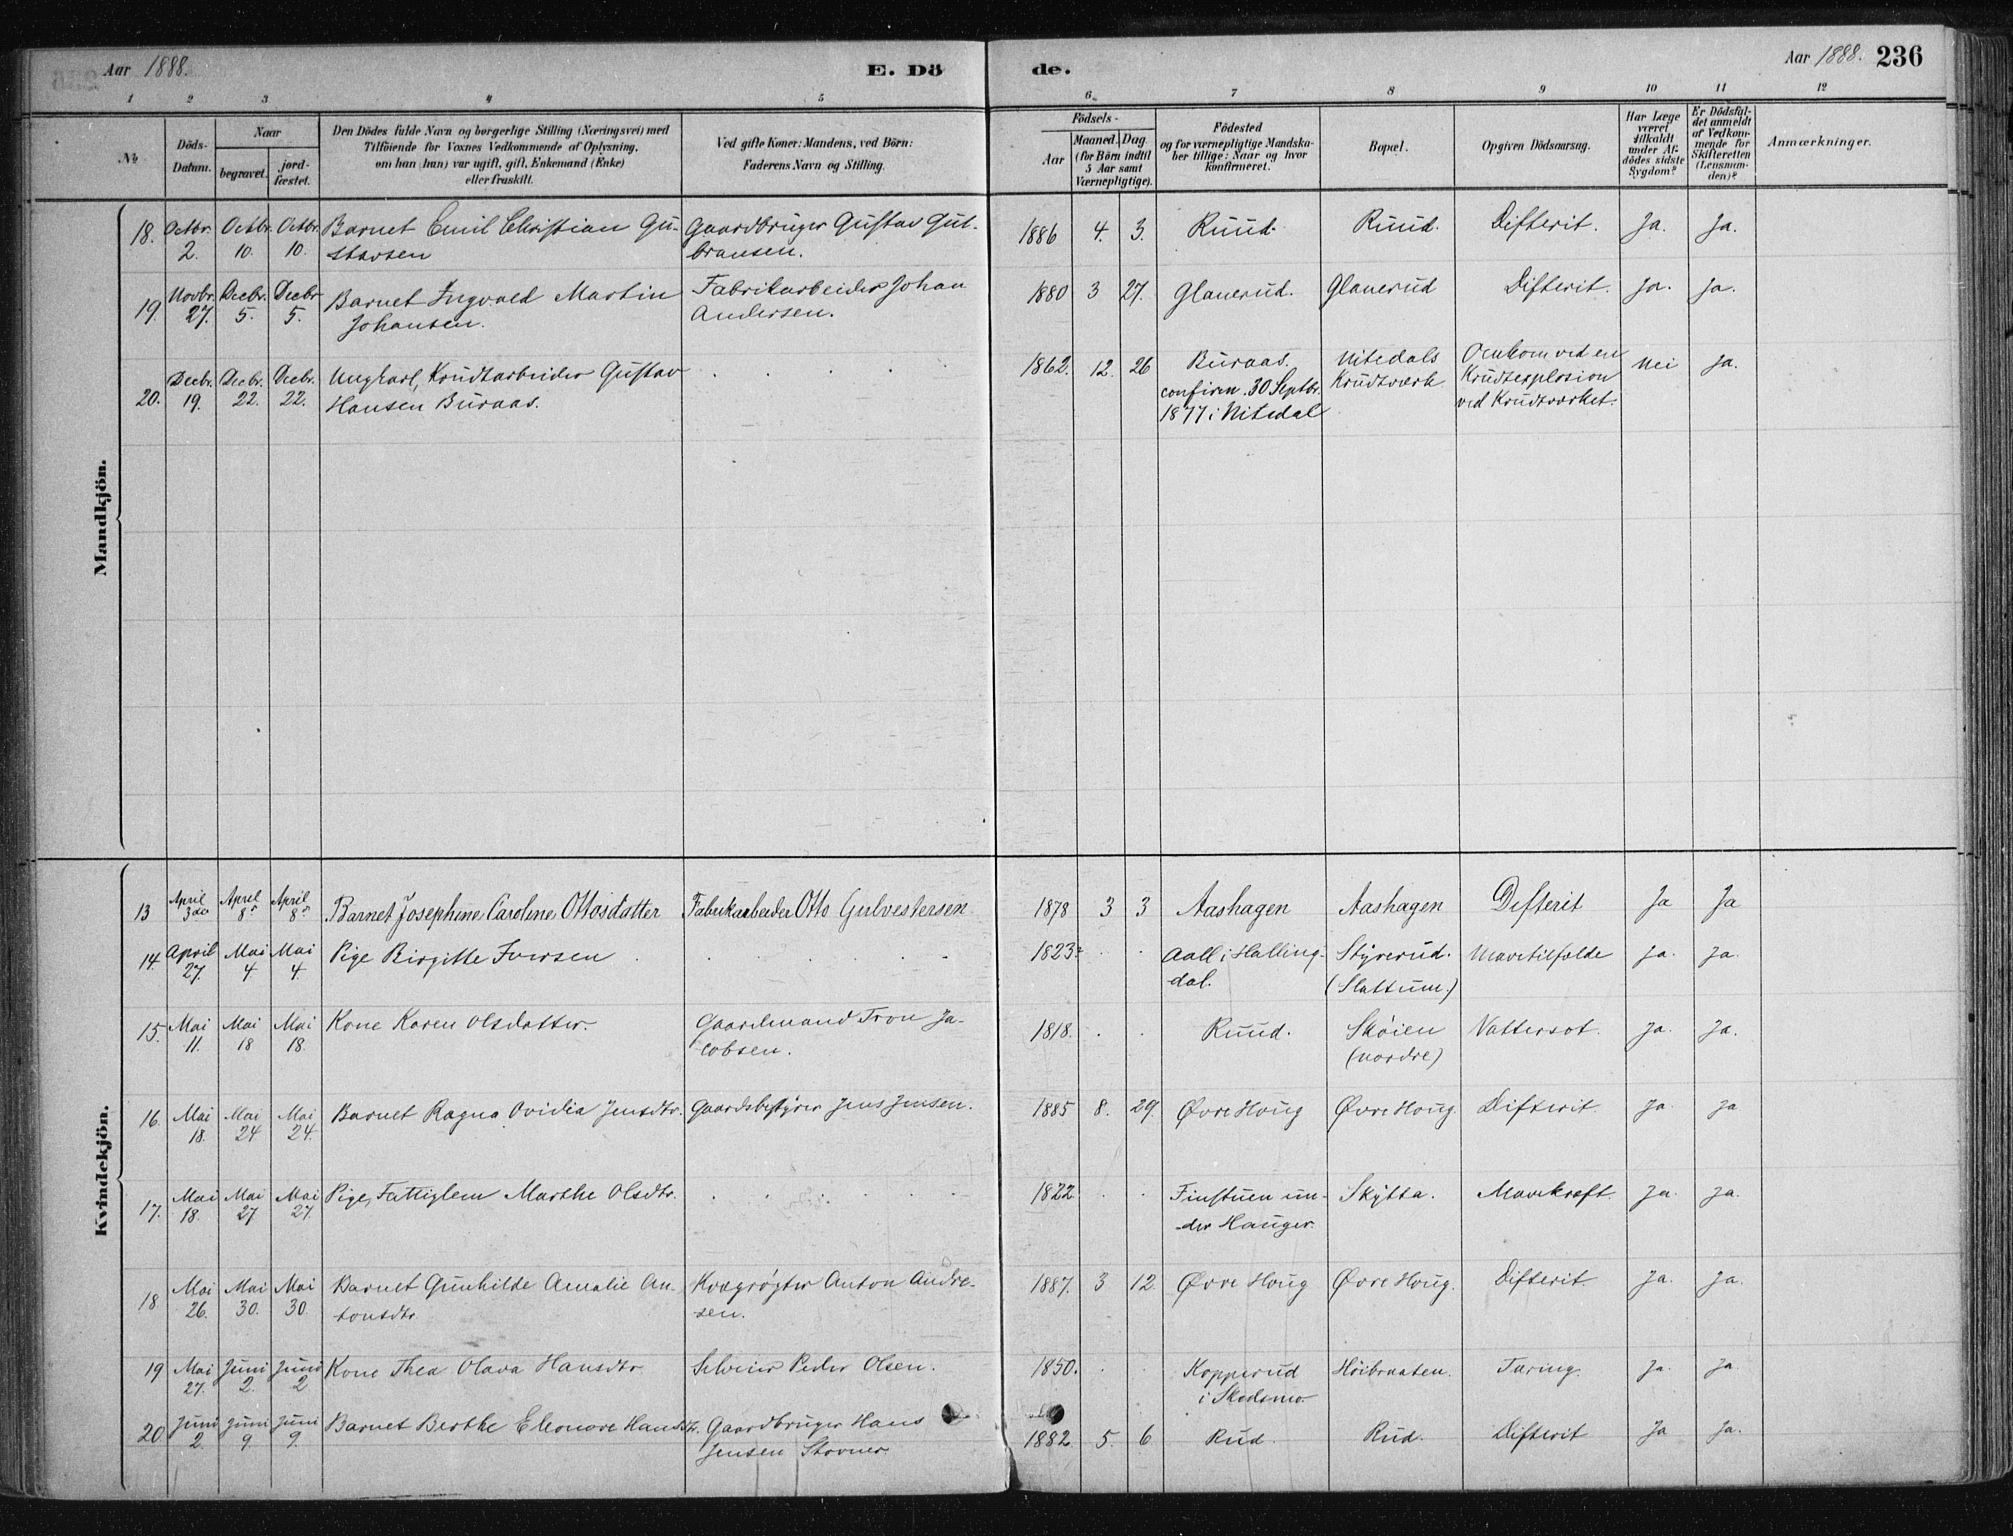 Aar 1888.
E. Dö
de.
Aar 1888. 236
1 2 3 4 5 6 7 8 9 10 11 12
No
Döds-
Datum.
Naar
begravet.
jord-
fæstet.
Den Dödes fulde Navn og borgerlige Stilling (Næringsvei) med
Tilföiende for Voxnes Vedkommende af Oplysning,
om han (hun) var ugift, gift, Enkemand (Enke)
eller fraskilt.
Ved gifte Koner: Mandens, ved Börn:
Faderens Navn og Stilling.
Födsels-
Aar
Maaned. Dag.
(for Börn indtil
5 Aar samt
Værnepligtige).
Födested
og for værnepligtige Mandska-
ber tillige: Naar og hvor
konfirmeret.
Bopæl.
Opgiven Dödsaarsag.
Har Læge
været
tilkaldt
under Af-
dödes sidste
Sygdom?
Er Dödsfal-
det anmeldt
af Vedkom-
mende for
Skifteretten
(Lensman-
den)?
Anmærkninger.
Mandkjön.
18. Octbr. 2. Octbr. 10. Octbr. 10. Barnet Emil Christian Gu-
stavsen
Gaardbruger Gustav Gul-
bransen.
1886 4. 3. Ruud. Ruud. Difterit. Ja. Ja.
19. Novbr. 27. Decbr. 5. Decbr 5. Barnet Ingvald Martin
Johansen.
Fabrikarbeider Johan
Andersen.
1880 3 27. Glanerud. Glanerud Difterit. Ja. Ja.
20. Decbr. 19. Decbr. 22. Decbr. 22. Ungkarl, Krudtarbeider Gustav
Hansen Buraas.
1862. 12. 26 Buraas.
confirm. 30 Septbr.
1877 i Nitedal
Nitedals
Krudtværk
Omkom ved en
Krudtexplosion
ved Krudtværket.
Nei Ja.
Kvindekjön.
13 April 3die April 8de April 8de Barnet Josephine Caroline Ottosdatter Fabrikarbeider Otto Gulvestersen 1878 3 3 Aashagen Aashagen Difterit Ja Ja
14. April 27. Mai 4 Mai 4. Pige Birgitte Iversen 1823. Aall i Halling-
dal.
Styrerud.
(Slattum.)
Mavetilfælde Ja. Ja.
15. Mai 11. Mai 18 Mai 18. Kone Karen Olsdatter. Gaardmand Tron Ja-
cobsen.
1818. Ruud. Skøien
(nordre)
Vattersot. Ja. Ja.
16. Mai 18. Mai 24 Mai 24. Barnet Ragna Ovidia Jensdtr. Gaardsbestyrer Jens Jensen. 1885 8. 29. Øvre Houg Øvre Houg. Difterit. Ja. Ja
17. Mai 18. Mai 27 Mai 27. Pige, Fattiglem Marthe Olsdtr. 1822. Finstuen un-
der Hauger.
Skytta. Mavekræft. Ja. Ja.
18 Mai 26. Mai 30. Mai 30. Barnet Gunhilde Amalie An-
tonsdtr.
Kvægrøgter Anton Andre-
sen.
1887. 3 12. Øvre Houg Øvre Houg. Difterit. Ja. Ja.
19 Mai 27. Juni 2. Juni 2 Kone Thea Olava Hansdtr Selveier Peder Olsen. 1850. Kopperud
i Skedsmo
Høibraaten. Tæring. Ja. Ja
20 Juni 2. Juni 9. Juni 9. Barnet Berthe Eleonore Hansdtr. Gaardbruger Hans
Jensen Stovner.
1882 5. 6 Rud. Rud. Difterit Ja Ja.